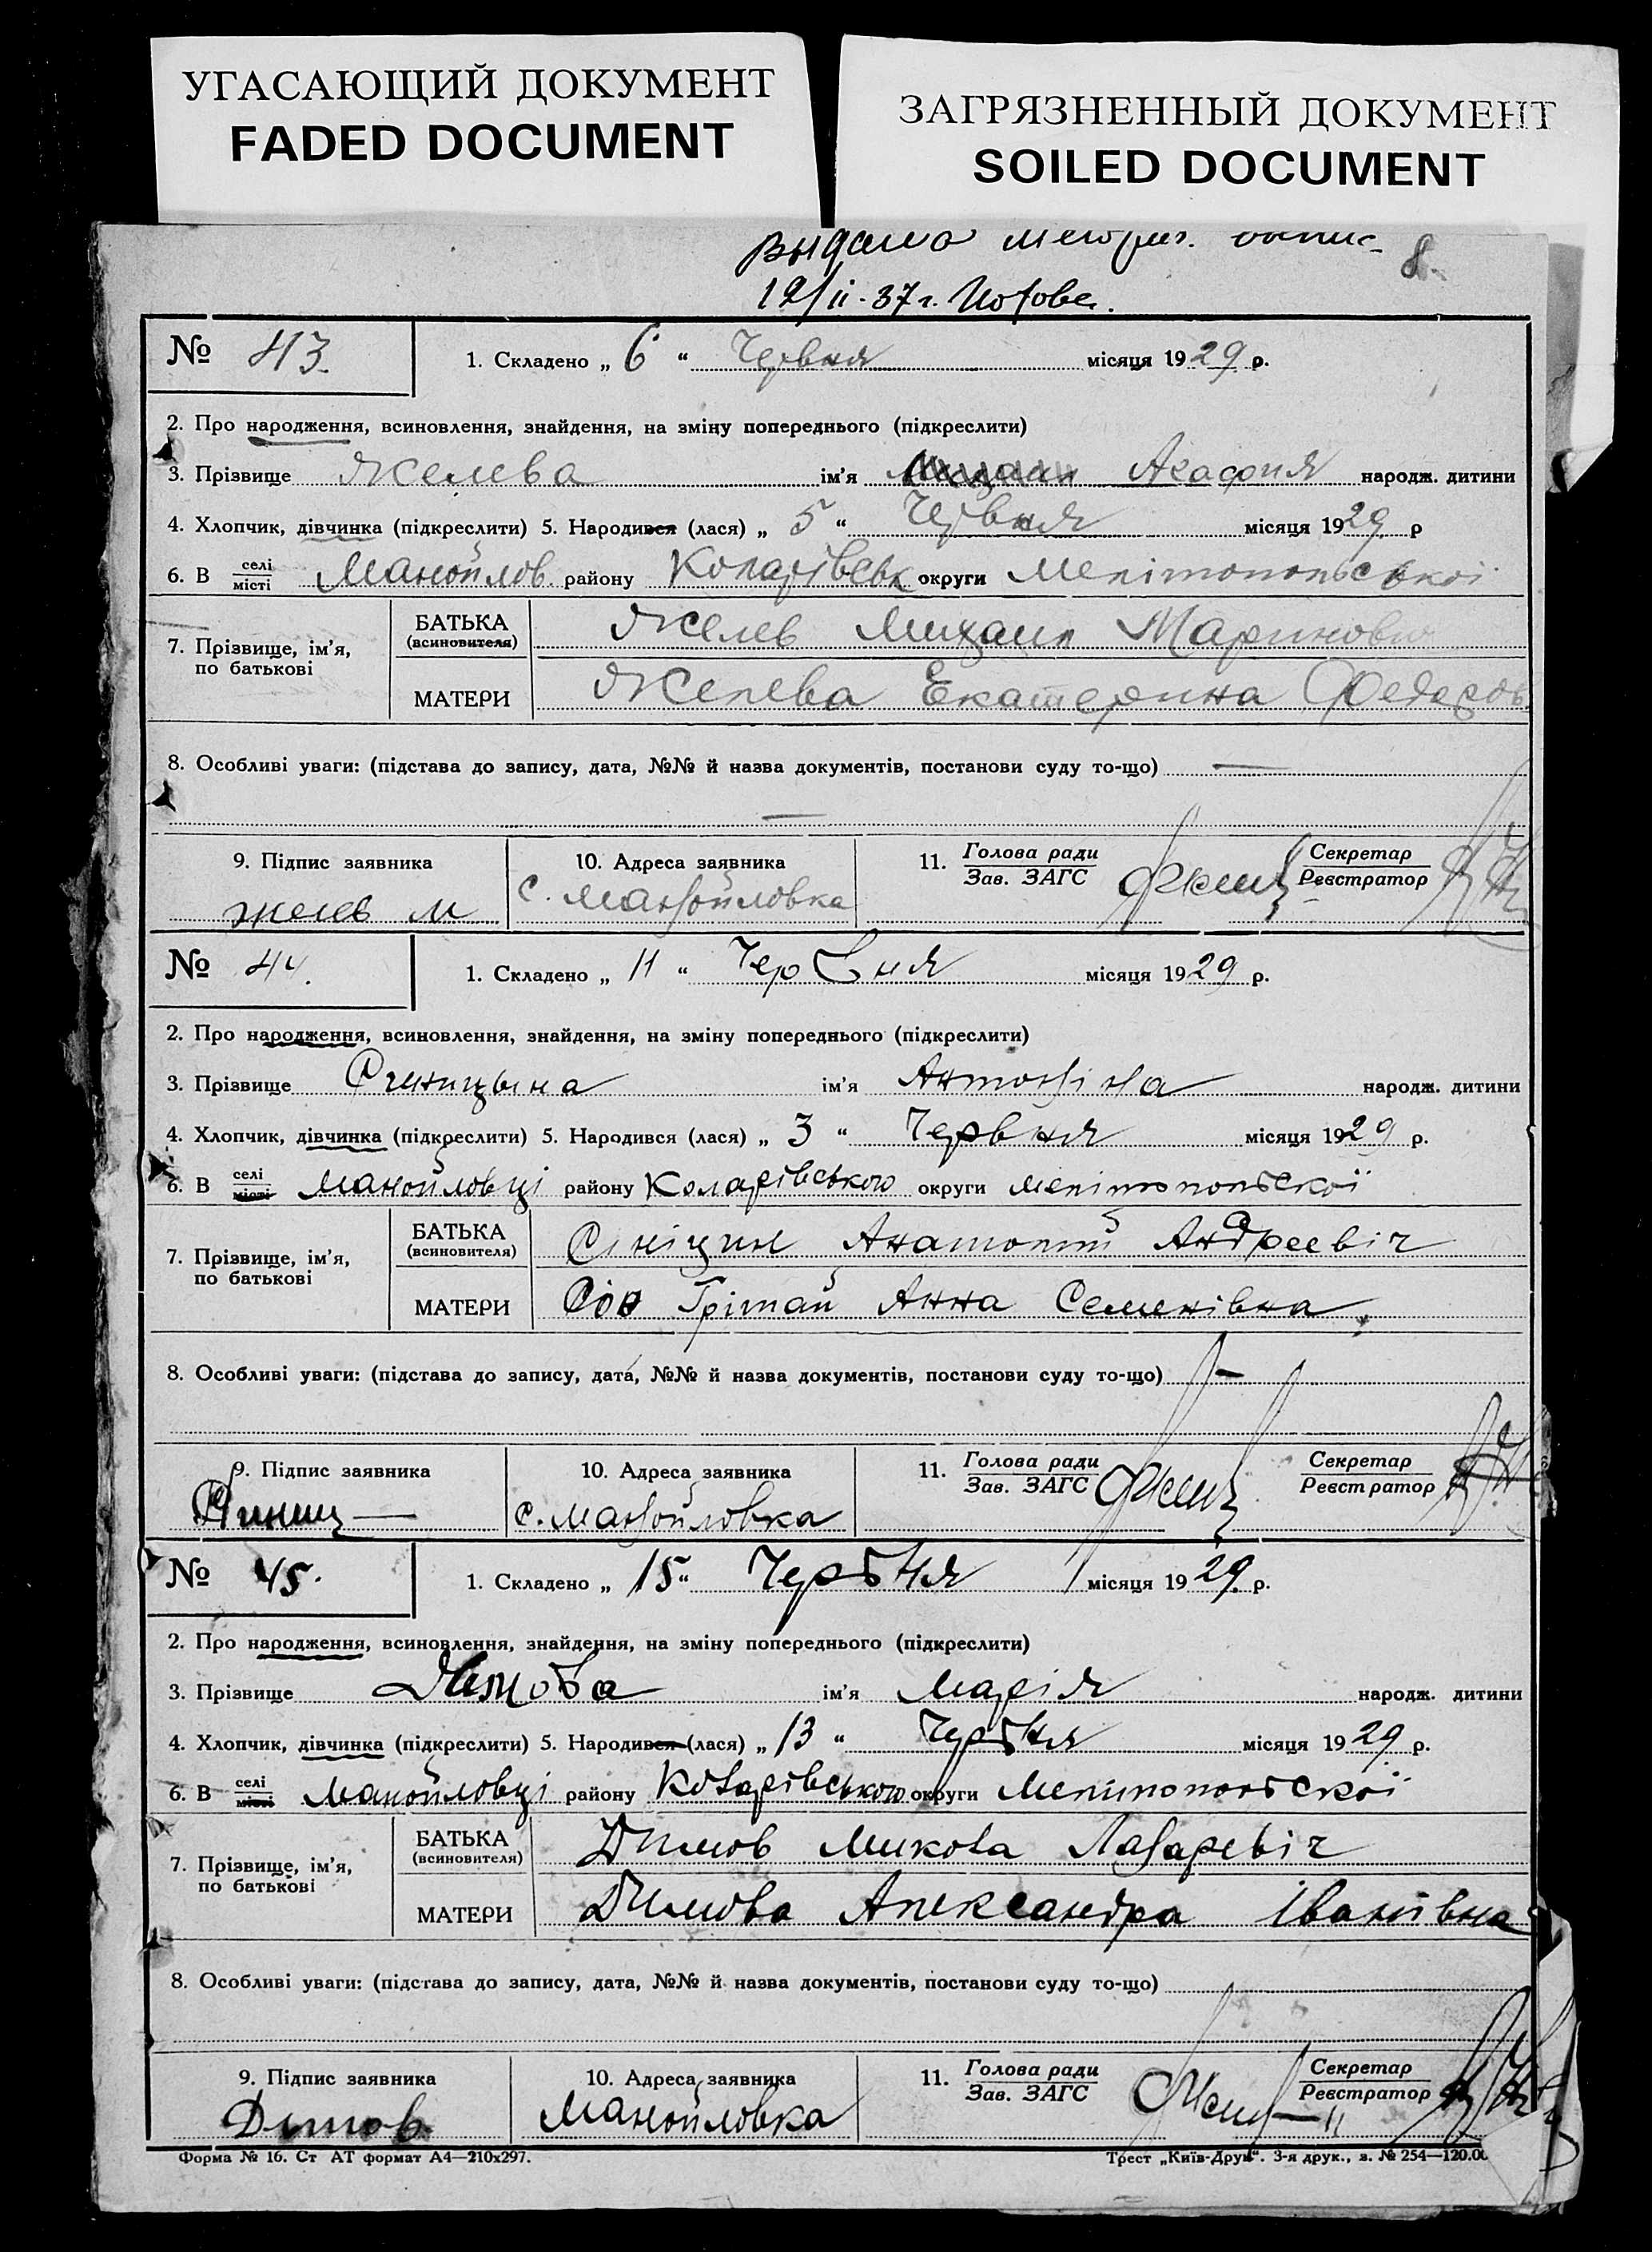 УГАСАЮЩИЙ ДОКУМЕНТ
FADED DOCUMENT
ЗАГРЯЗНЕННЫЙ ДОКУМЕНТ
SOILED DOCUMENT
Выдана
8.
19/II-37 г.
№ 43. 1. Складено „ 6 “ Червня місяця 1929 р.
2. Про народження, всиновлення, знайдення, на зміну попереднього (підкреслити)
3. Прізвище Желева ім’я Агафия народж. дитини
4. Хлопчик, дівчинка (підкреслити) 5. Народився (лася) „ 5 “ Червня місяця 1929 р
6. В селі
місті Манойлов району Коларівськ округи Мелітопольської
7. Прізвище, ім’я,
по батькові
БАТЬКА
(всиновителя) Желев Михаил Маринович
МАТЕРИ Желева Екатерина Федоров
8. Особливі уваги: (підстава до запису, дата, №№ й назва документів, постанови суду то-що) —
—
9. Підпис заявника
желев м
10. Адреса заявника
с. Манойловка
11. Голова ради
Зав. ЗАГС
Секретар
Реєстратор
№ 44. 1. Складено „ 11 “ Червня місяця 1929 р.
2. Про народження, всиновлення, знайдення, на зміну попереднього (підкреслити)
3. Прізвище Синицына ім’я Антоніна народж. дитини
4. Хлопчик, дівчинка (підкреслити) 5. Народився (лася) „ 3 “ Червня місяця 1929 р.
6. В селі
місті Манойловці району Коларівського округи Мелітопольскої
7. Прізвище, ім’я,
по батькові
БАТЬКА
(всиновителя) Сініцин Анатолий Андреевіч
МАТЕРИ Анна Семенівна
8. Особливі уваги: (підстава до запису, дата, №№ й назва документів, постанови суду то-що) —
9. Підпис заявника
10. Адреса заявника
с. Манойловка
11. Голова ради
Зав. ЗАГС
Секретар
Реєстратор
№ 45. 1. Складено „ 15 “ Червня місяця 1929 р.
2. Про народження, всиновлення, знайдення, на зміну попереднього (підкреслити)
3. Прізвище Димова ім’я Марія народж. дитини
4. Хлопчик, дівчинка (підкреслити) 5. Народився (лася) „ 13 “ Червня місяця 1929 р.
6. В селі
місті Манойловці району Коларівського округи Мелітопольскої
7. Прізвище, ім’я,
по батькові
БАТЬКА
(всиновителя) Димов Микола Лазаревіч
МАТЕРИ Димова Александра Іванівна
8. Особливі уваги: (підстава до запису, дата, №№ й назва документів, постанови суду то-що)
9. Підпис заявника
Димов
10. Адреса заявника
Манойловка
11. Голова ради
Зав. ЗАГС
Секретар
Реєстратор
Форма № 16. Ст АТ формат А4—210х297.
Трест „Київ-Друк“. 3-я друк., з. № 254—120.00